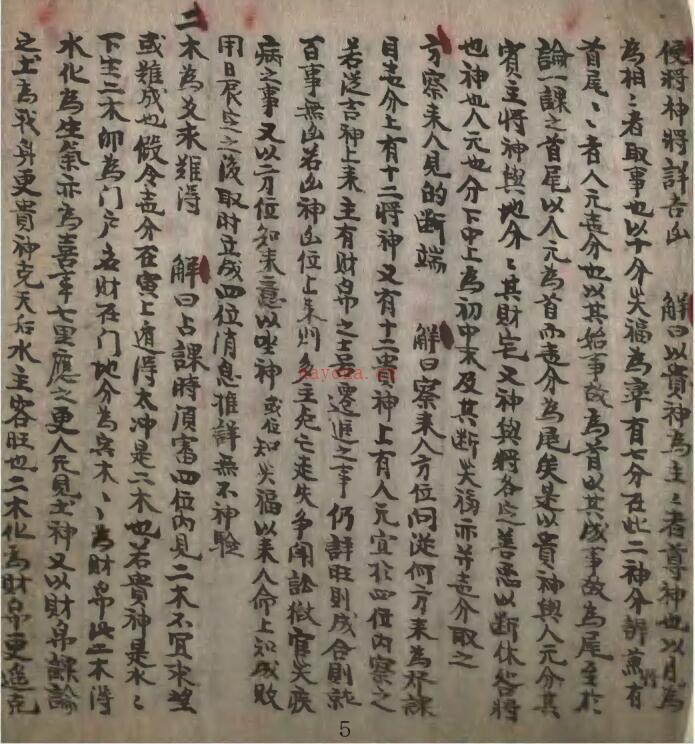 便將神將詳吉凶 解曰以貴神為主主者尊神也以月將為
為相相者取事也以十分災福為率有七分在此二神分辨兼有
首尾尾者人元地分也以其始事故為首以其成事故為尾至於
論一課之首尾以人元為首而地分為尾矣是以貴神與人元分其
賓主將神與地分分其財宅又神與將各定善惡以斷休咎將
也神也人元也分下中上為初中末及其斷災福亦并地分取之
方察來人見的斷端 解曰察來人方位問從何方來為杯課
目地分上有十二將神又有十二貴神上有人元宜於四位內察之
若從吉神上來主有財帛之士品遷進之事仍詳旺則成合則就
百事無凶若凶神凶位上來則多主死亡走失爭鬥訟獄官災疾
病之事又以方位知來意以坐神或位知災福以來人命上知成敗
用日辰定之後取財立成四位消息推詳無不神驗
二木為爻求難得 解曰占課時須審四位內見二木不宜求望
或難成也假令地分在寅上遁得太冲是二木也若貴神是水水
下生二木卯為門戶者財在門地分為寅木木為財帛此二木得
水化為生氣亦為喜事七里應之更人元見土神又以財帛課論
之土為我身更貴神克天后水主客旺也二木化為財帛更遙克
nayona.cn
5